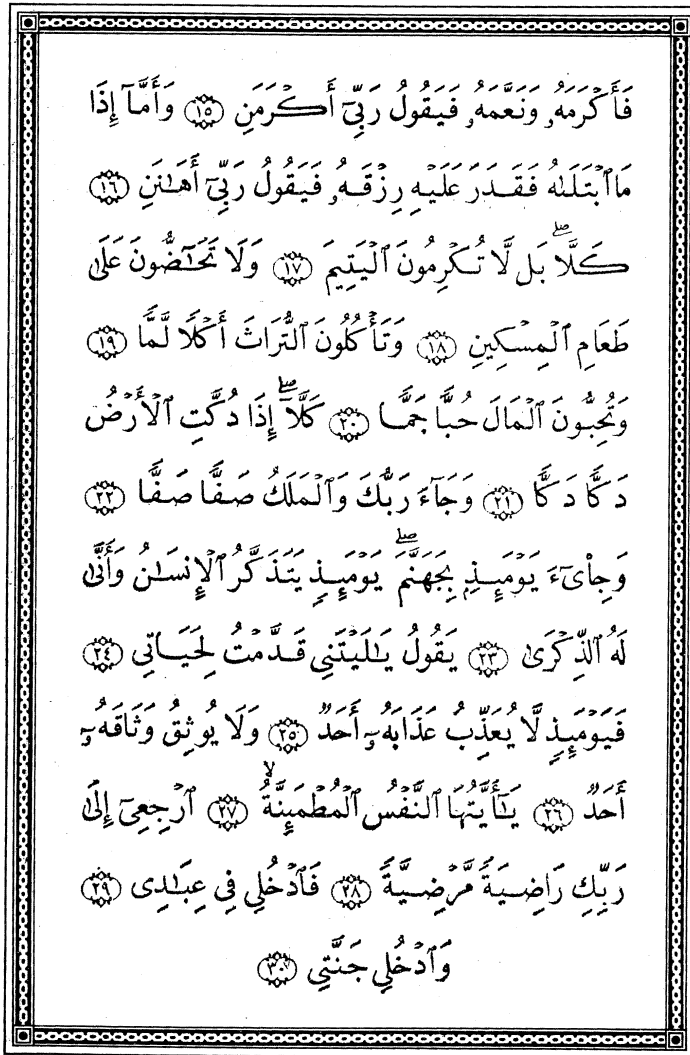 فَأَكْرَمَهُۥ وَنَعَّمَهُۥ فَيَقُولُ رَبِّىٓ أَكْرَمَنِ ﴿١٥﴾ وَأَمَّآ إِذَا
مَا ٱبْتَلَىٰهُ فَقَدَرَ عَلَيْهِ رِزْقَهُۥ فَيَقُولُ رَبِّىٓ أَهَـٰنَنِ ﴿١٦﴾
كَلَّاۖ بَل لَّا تُكْرِمُونَ ٱلْيَتِيمَ ﴿١٧﴾ وَلَا تَحَـٰٓضُّونَ عَلَىٰ
طَعَامِ ٱلْمِسْكِينِ ﴿١٨﴾ وَتَأْكُلُونَ ٱلتُّرَاثَ أَكْلًا لَّمًّا ﴿١٩﴾
وَتُحِبُّونَ ٱلْمَالَ حُبًّا جَمًّا ﴿٢٠﴾ كَلَّآۖ إِذَا دُكَّتِ ٱلْأَرْضُ
دَكًّا دَكًّا ﴿٢١﴾ وَجَآءَ رَبُّكَ وَٱلْمَلَكُ صَفًّا صَفًّا ﴿٢٢﴾
وَجِا۟ىٓءَ يَوْمَئِذٍۭ بِجَهَنَّمَۖ يَوْمَئِذٍ يَتَذَكَّرُ ٱلْإِنسَـٰنُ وَأَنَّىٰ
لَهُ ٱلذِّكْرَىٰ ﴿٢٣﴾ يَقُولُ يَـٰلَيْتَنِى قَدَّمْتُ لِحَيَاتِى ﴿٢٤﴾
فَيَوْمَئِذٍ لَّا يُعَذِّبُ عَذَابَهُۥٓ أَحَدٌ ﴿٢٥﴾ وَلَا يُوثِقُ وَثَاقَهُۥٓ
أَحَدٌ ﴿٢٦﴾ يَـٰٓأَيَّتُهَا ٱلنَّفْسُ ٱلْمُطْمَئِنَّةُۙ ﴿٢٧﴾ ٱرْجِعِىٓ إِلَىٰ
رَبِّكِ رَاضِيَةً مَّرْضِيَّةً ﴿٢٨﴾ فَٱدْخُلِى فِى عِبَـٰدِى ﴿٢٩﴾
وَٱدْخُلِى جَنَّتِى ﴿٣٠﴾